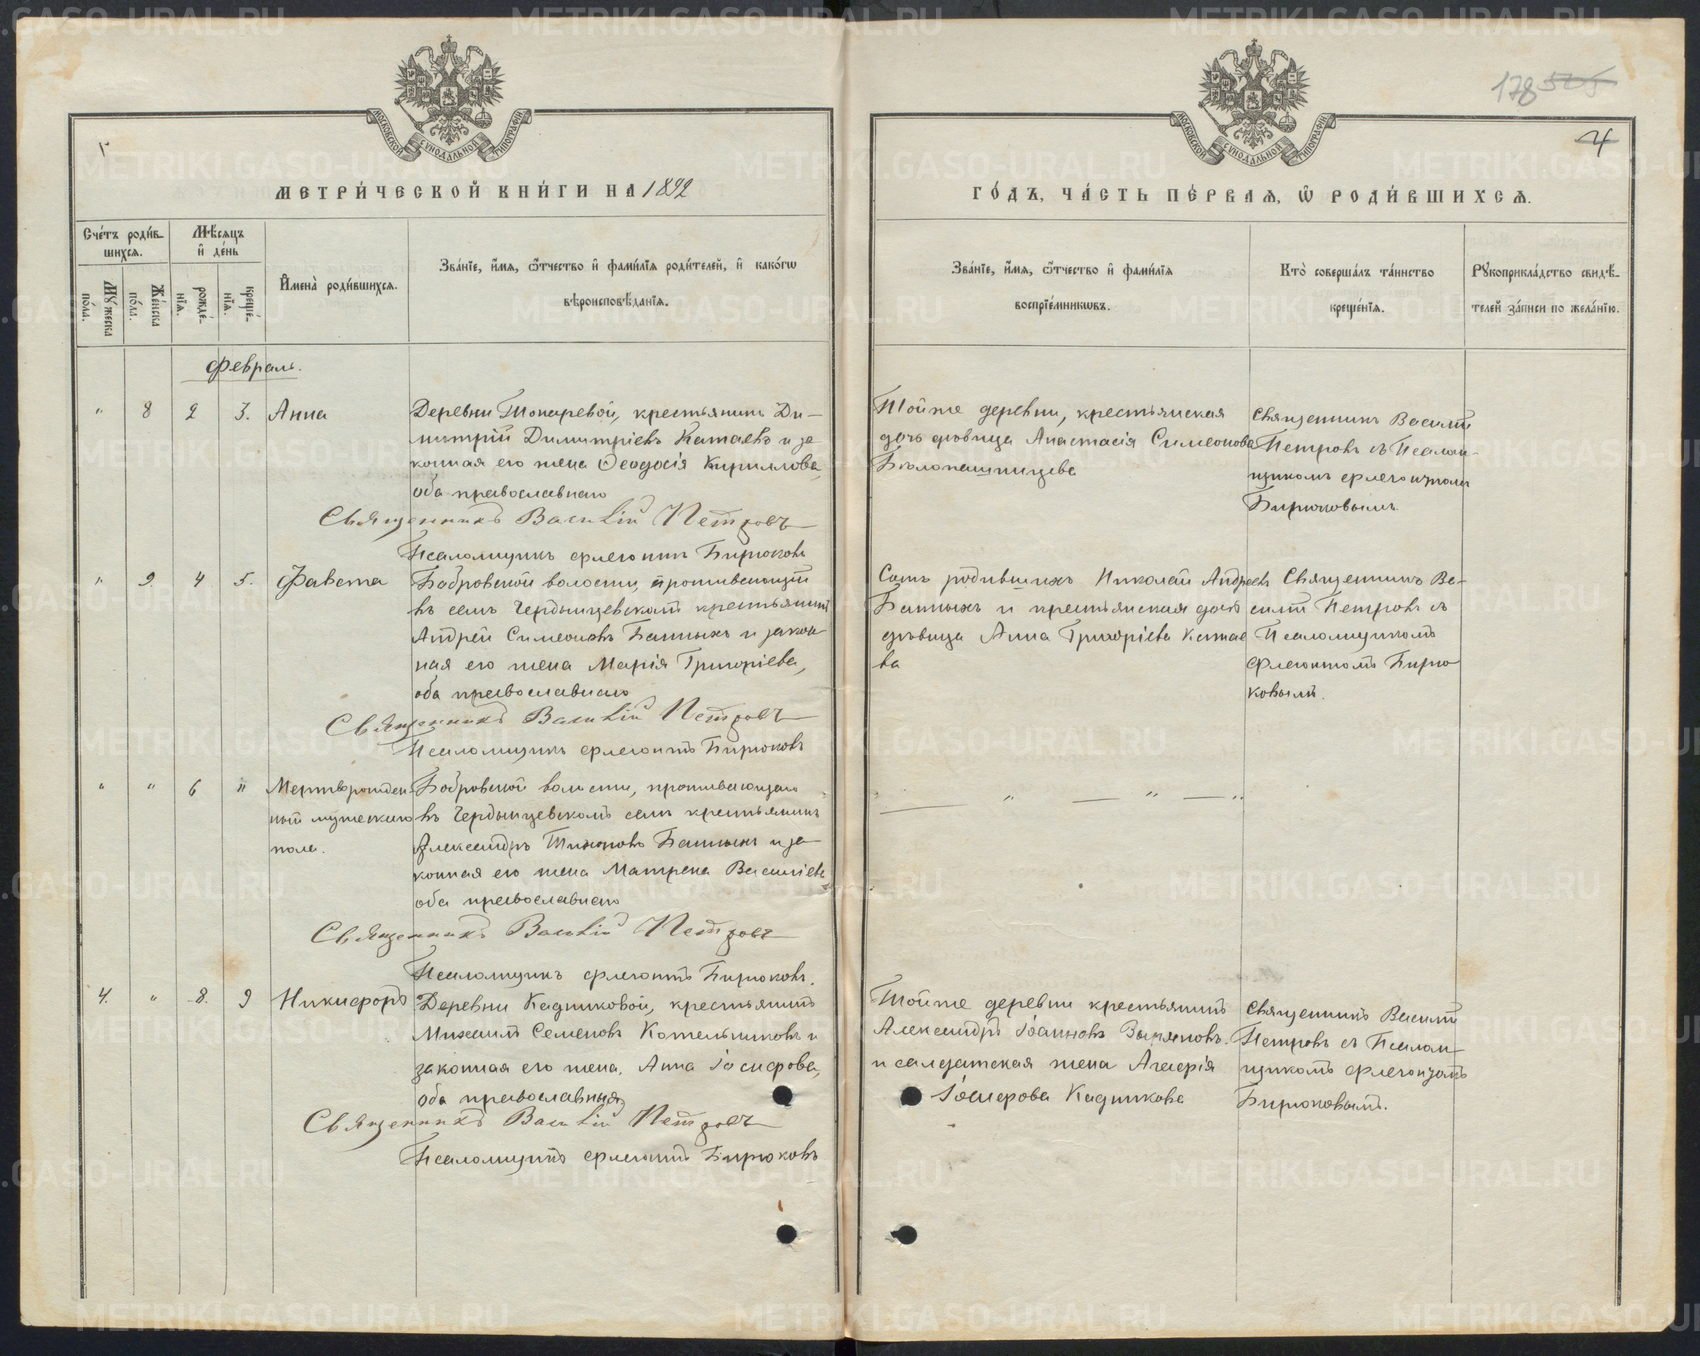 178 505
4
МОСКОВСКОЙ СУНОДАЛЬНОЙ ТИПОГРАФІИ
МОСКОВСКОЙ СУНОДАЛЬНОЙ ТИПОГРАФІИ
МЕТРИ́ЧЕСКОЙ КНИ́ГИ НА 1892
ГО́ДЪ, ЧА́СТЬ ПЕ́РВАЯ, Ѡ РОДИ́ВШИХСЯ.
Сче́тъ роди́в-
шихся.
Мѣсяцъ
и҆ де́нь
Му́жеска
по́ла.
Же́нска
по́ла.
рожде́-
нїя.
креще́-
нїя.
И҆мена̀ роди́вшихся.
Зва́нїе, и҆́мя, ѻ҆́тчество и҆ фами́лїя роди́телей, и҆ како́гѡ
вѣроисповѣ́данїя.
Зва́нїе, и҆́мя, ѻ҆́тчество и҆ фами́лїя
воспрїе́мникѡвъ.
Кто̀ соверша́лъ та́инство
креще́нїя.
Рꙋкоприкла́дство свидѣ́-
телей за́писи по жела́нїю.
Февраль.
" 8 2 3. Анна
Деревни Токаревой, крестьянинъ Ди-
митрій Димитріевъ Катаевъ и за
конная его жена Ѳеодосія Кириллова
оба православнаго
Священникъ Василій Петровъ
Псаломщикъ Флегонтъ Бирюковъ
Тойже деревни, крестьянская
дочь дѣвица Анастасія Симеонова
Бѣлопашинцева
Священникъ Василій
Петровъ съ Псалом-
щикомъ Флегонтомъ
Бирюковымъ
" 9. 4 5. Фавста
Бобровской волости, проживающій
въ селѣ Чердынцевскомъ крестьянинъ
Андрей Симеоновъ Банныхъ и закон
ная его жена Марія Григоріева,
оба православнаго
Священникъ Василій Петровъ
Псаломщикъ Флегонтъ Бирюковъ
Сынъ родившихъ Николай Андреевъ
Банныхъ и крестьянская дочь
дѣвица Анна Григоріева Катае
ва
Священникъ Ва-
силій Петровъ съ
Псаломщикомъ
Флегонтомъ Бирю
ковымъ.
" " 6 " Мертворожден-
ный мужескаго
пола.
Бобровской волости, проживающаго
въ Чердынцевскомъ селѣ крестьянинъ
Александръ Тихоновъ Банныхъ и за-
конная его жена Матрена Василіева
оба православнаго
Священникъ Василій Петровъ
Псаломщикъ Флегонтъ Бирюковъ.
— " — " — "
4. " 8. 9 Никифоръ
Деревни Кадниковой, крестьянинъ
Михаилъ Семеновъ Котельниковъ и
законная его жена, Анна Іосифова,
оба православныя
Священникъ Василій Петровъ
Псаломщикъ Флегонтъ Бирюковъ
Тойже деревни крестьянинъ
Александръ Іоанновъ Зыряновъ
и солдатская жена Агафія
Іосифова Кадникова
Священникъ Василій
Петровъ съ Псалом-
щикомъ Флегонтомъ
Бирюковымъ.
METRIKI.GASO-URAL.RU